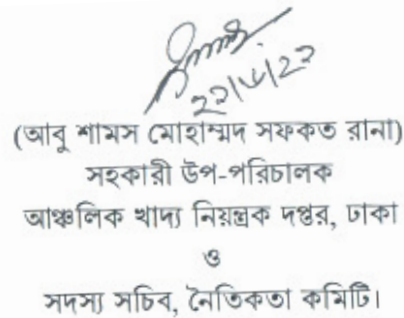 ২২/৮/২২
(আবু শামস মোহাম্মদ সফকত রানা)
সহকারী উপ-পরিচালক
আঞ্চলিক খাদ্য নিয়ন্ত্রক দপ্তর, ঢাকা
ও
সদস্য সচিব, নৈতিকতা কমিটি।